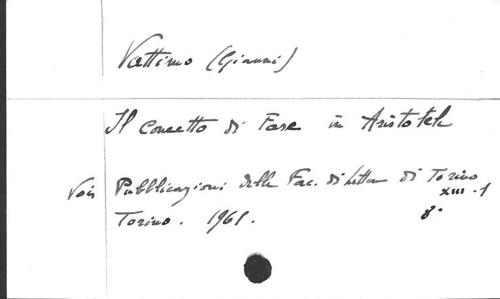 Vattimo (Gianni)
Il concetto di Fare in Aristotele
Voir Pubblicazioni della Fac. di Lettere di Torino
XIII. 1
Torino. 1961.
8°